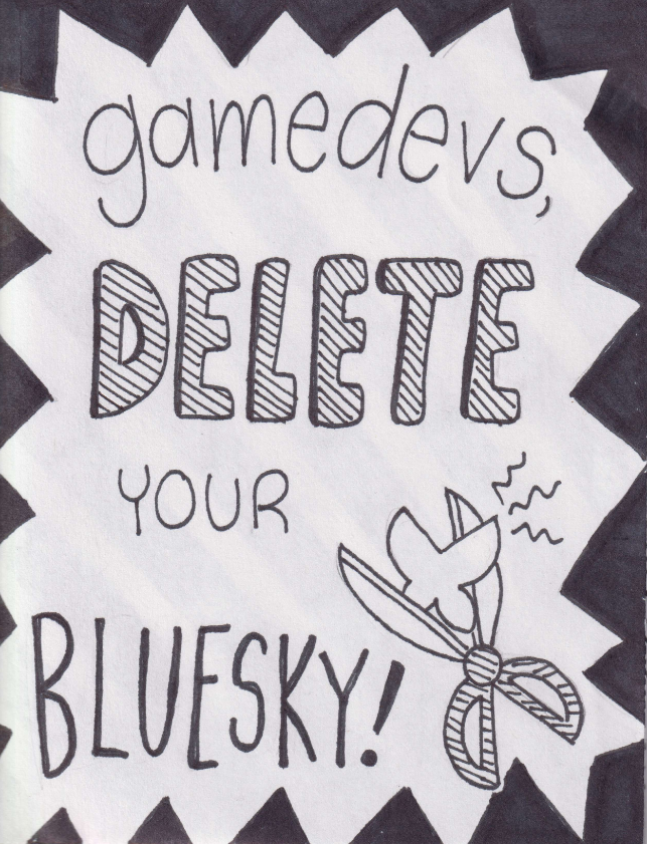 gamedevs,
DELETE
YOUR
BLUESKY!